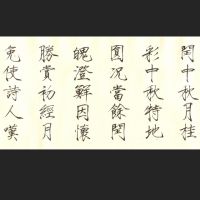 閏中秋月桂
彩中秋特地
圓況當餘閏
魄澄鮮因懷
勝賞初經月
免使詩人嘆